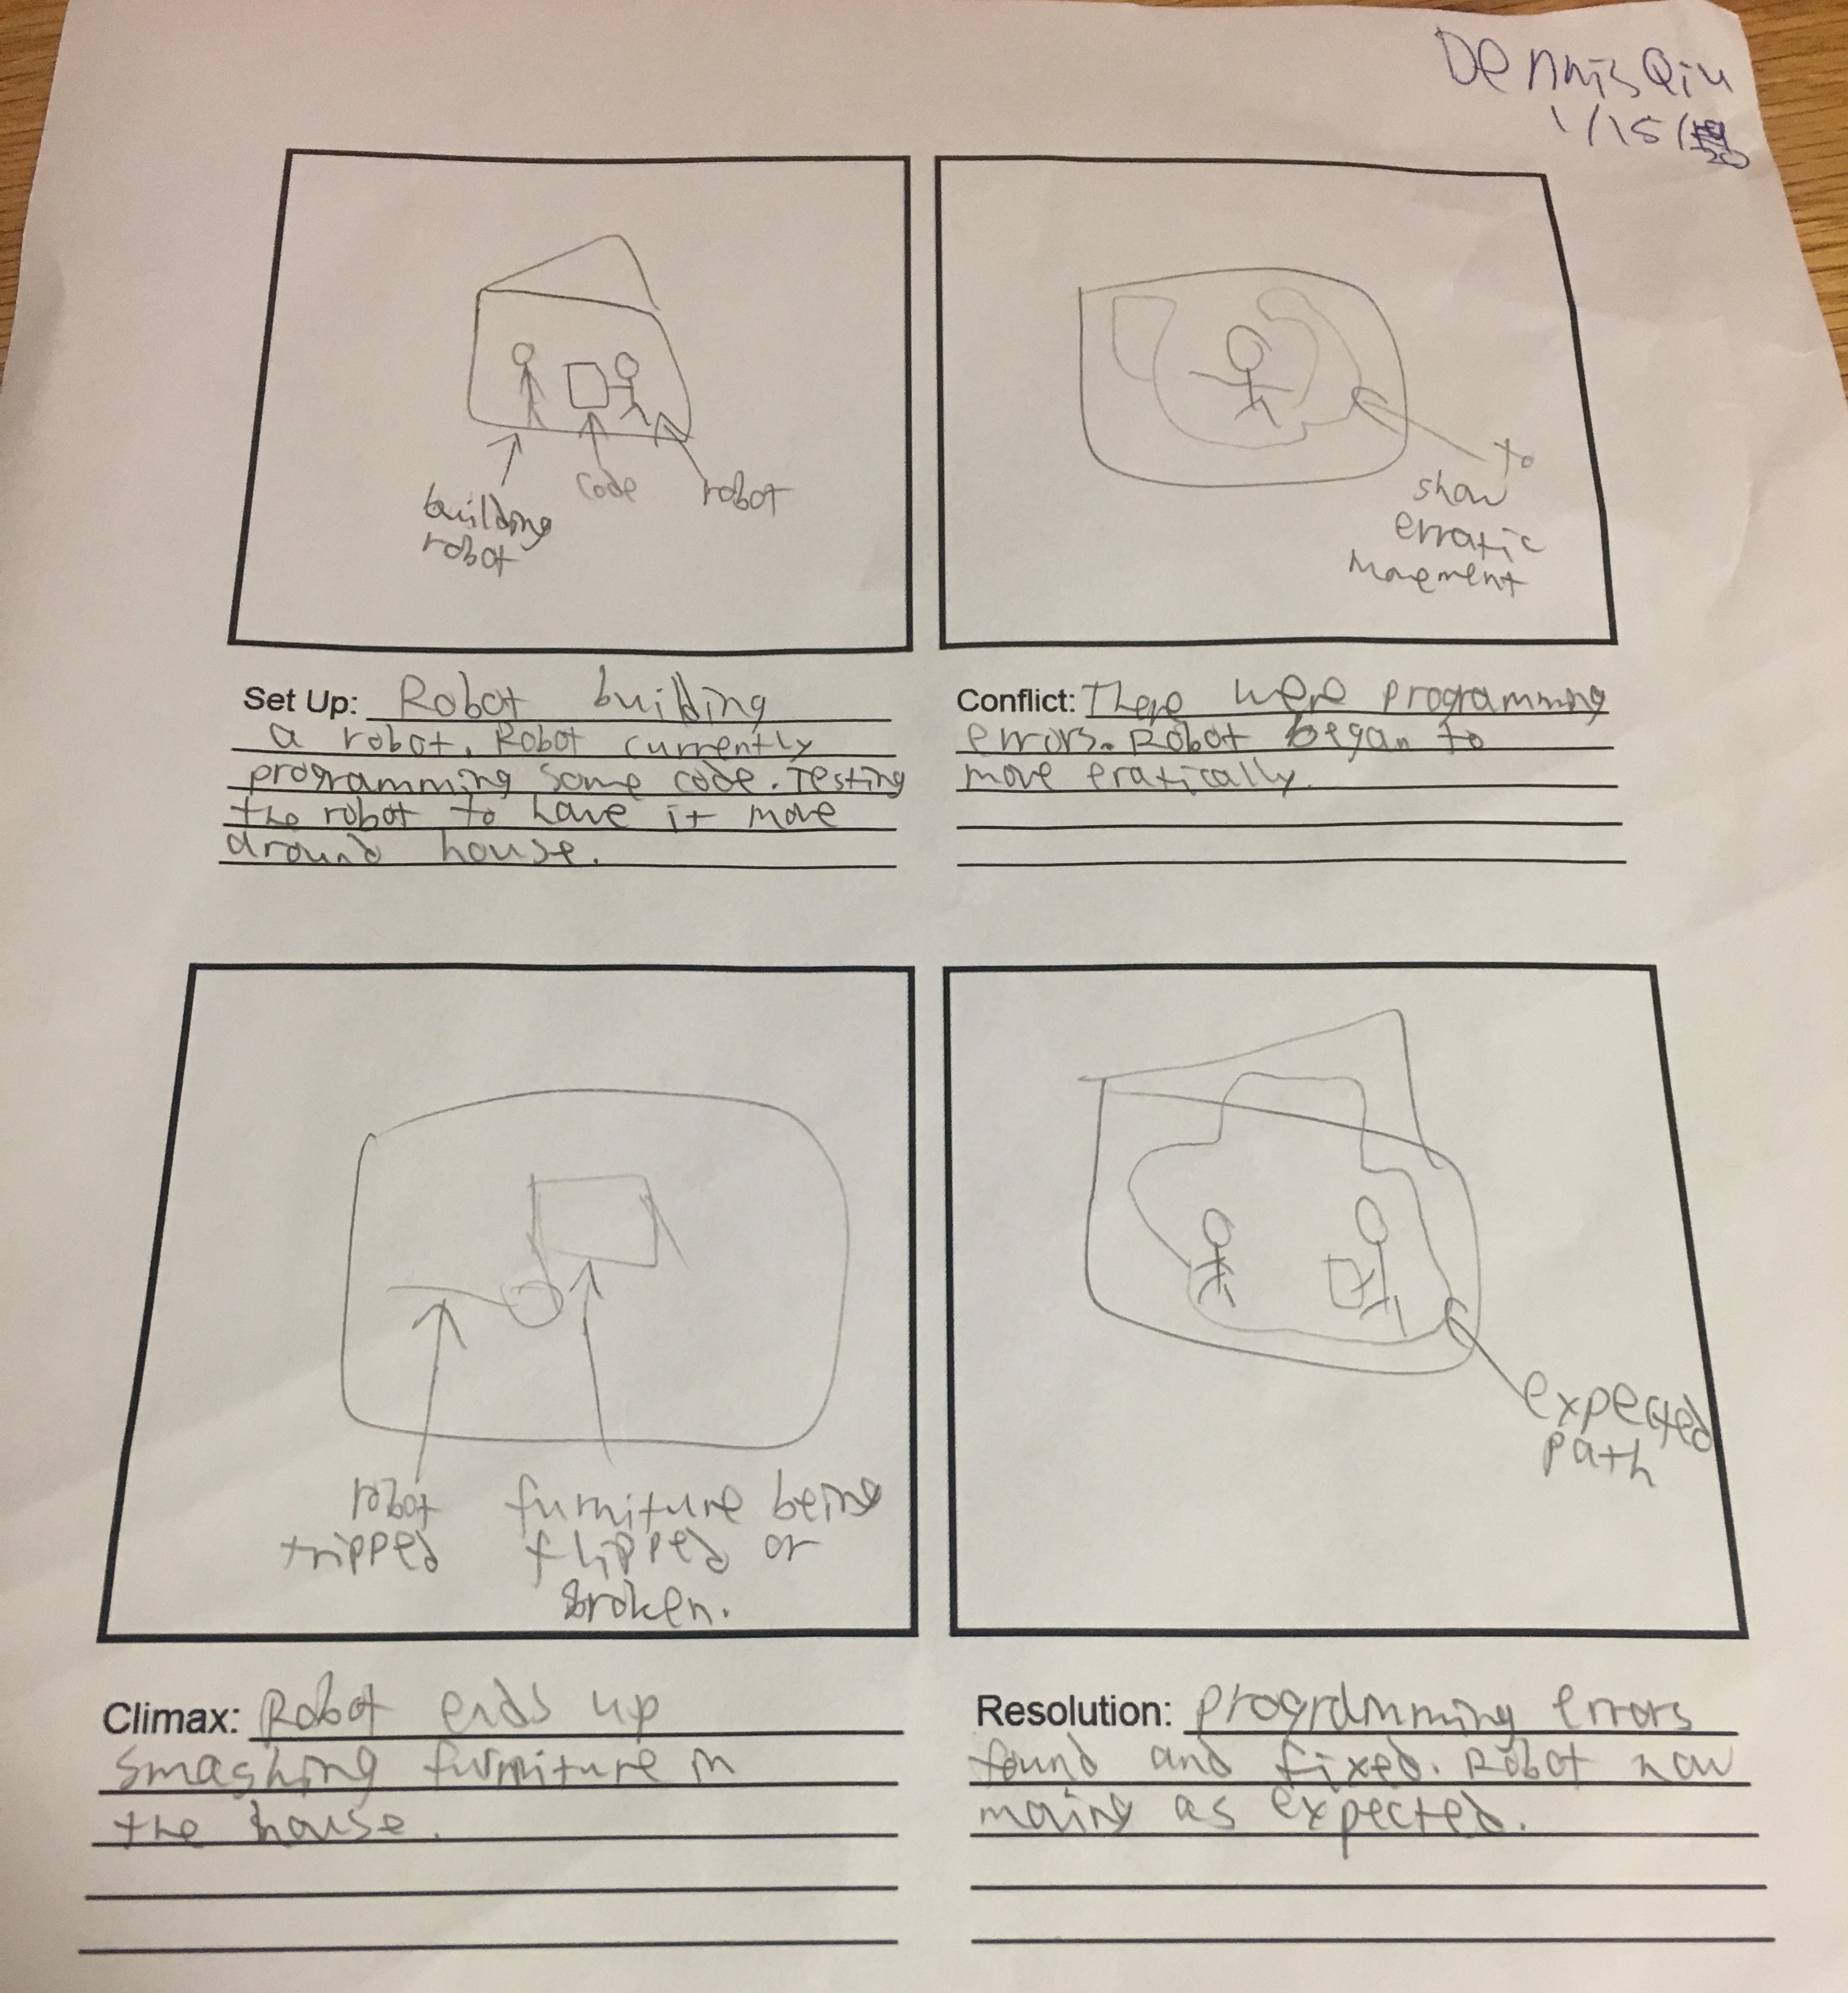 Dennis Qiu
1/15/20
building
robot
code
robot
to
show
erratic
movement
Set Up: Robot building
a robot. Robot currently
programming some code. Testing
the robot to have it move
around house.
Conflict: There were programming
errors. Robot began to
move eratically.
robot
tripped
furniture being
flipped or
broken.
expected
path
Climax: Robot ends up
smashing furniture in
the house.
Resolution: programming errors
found and fixed. Robot now
moving as expected.